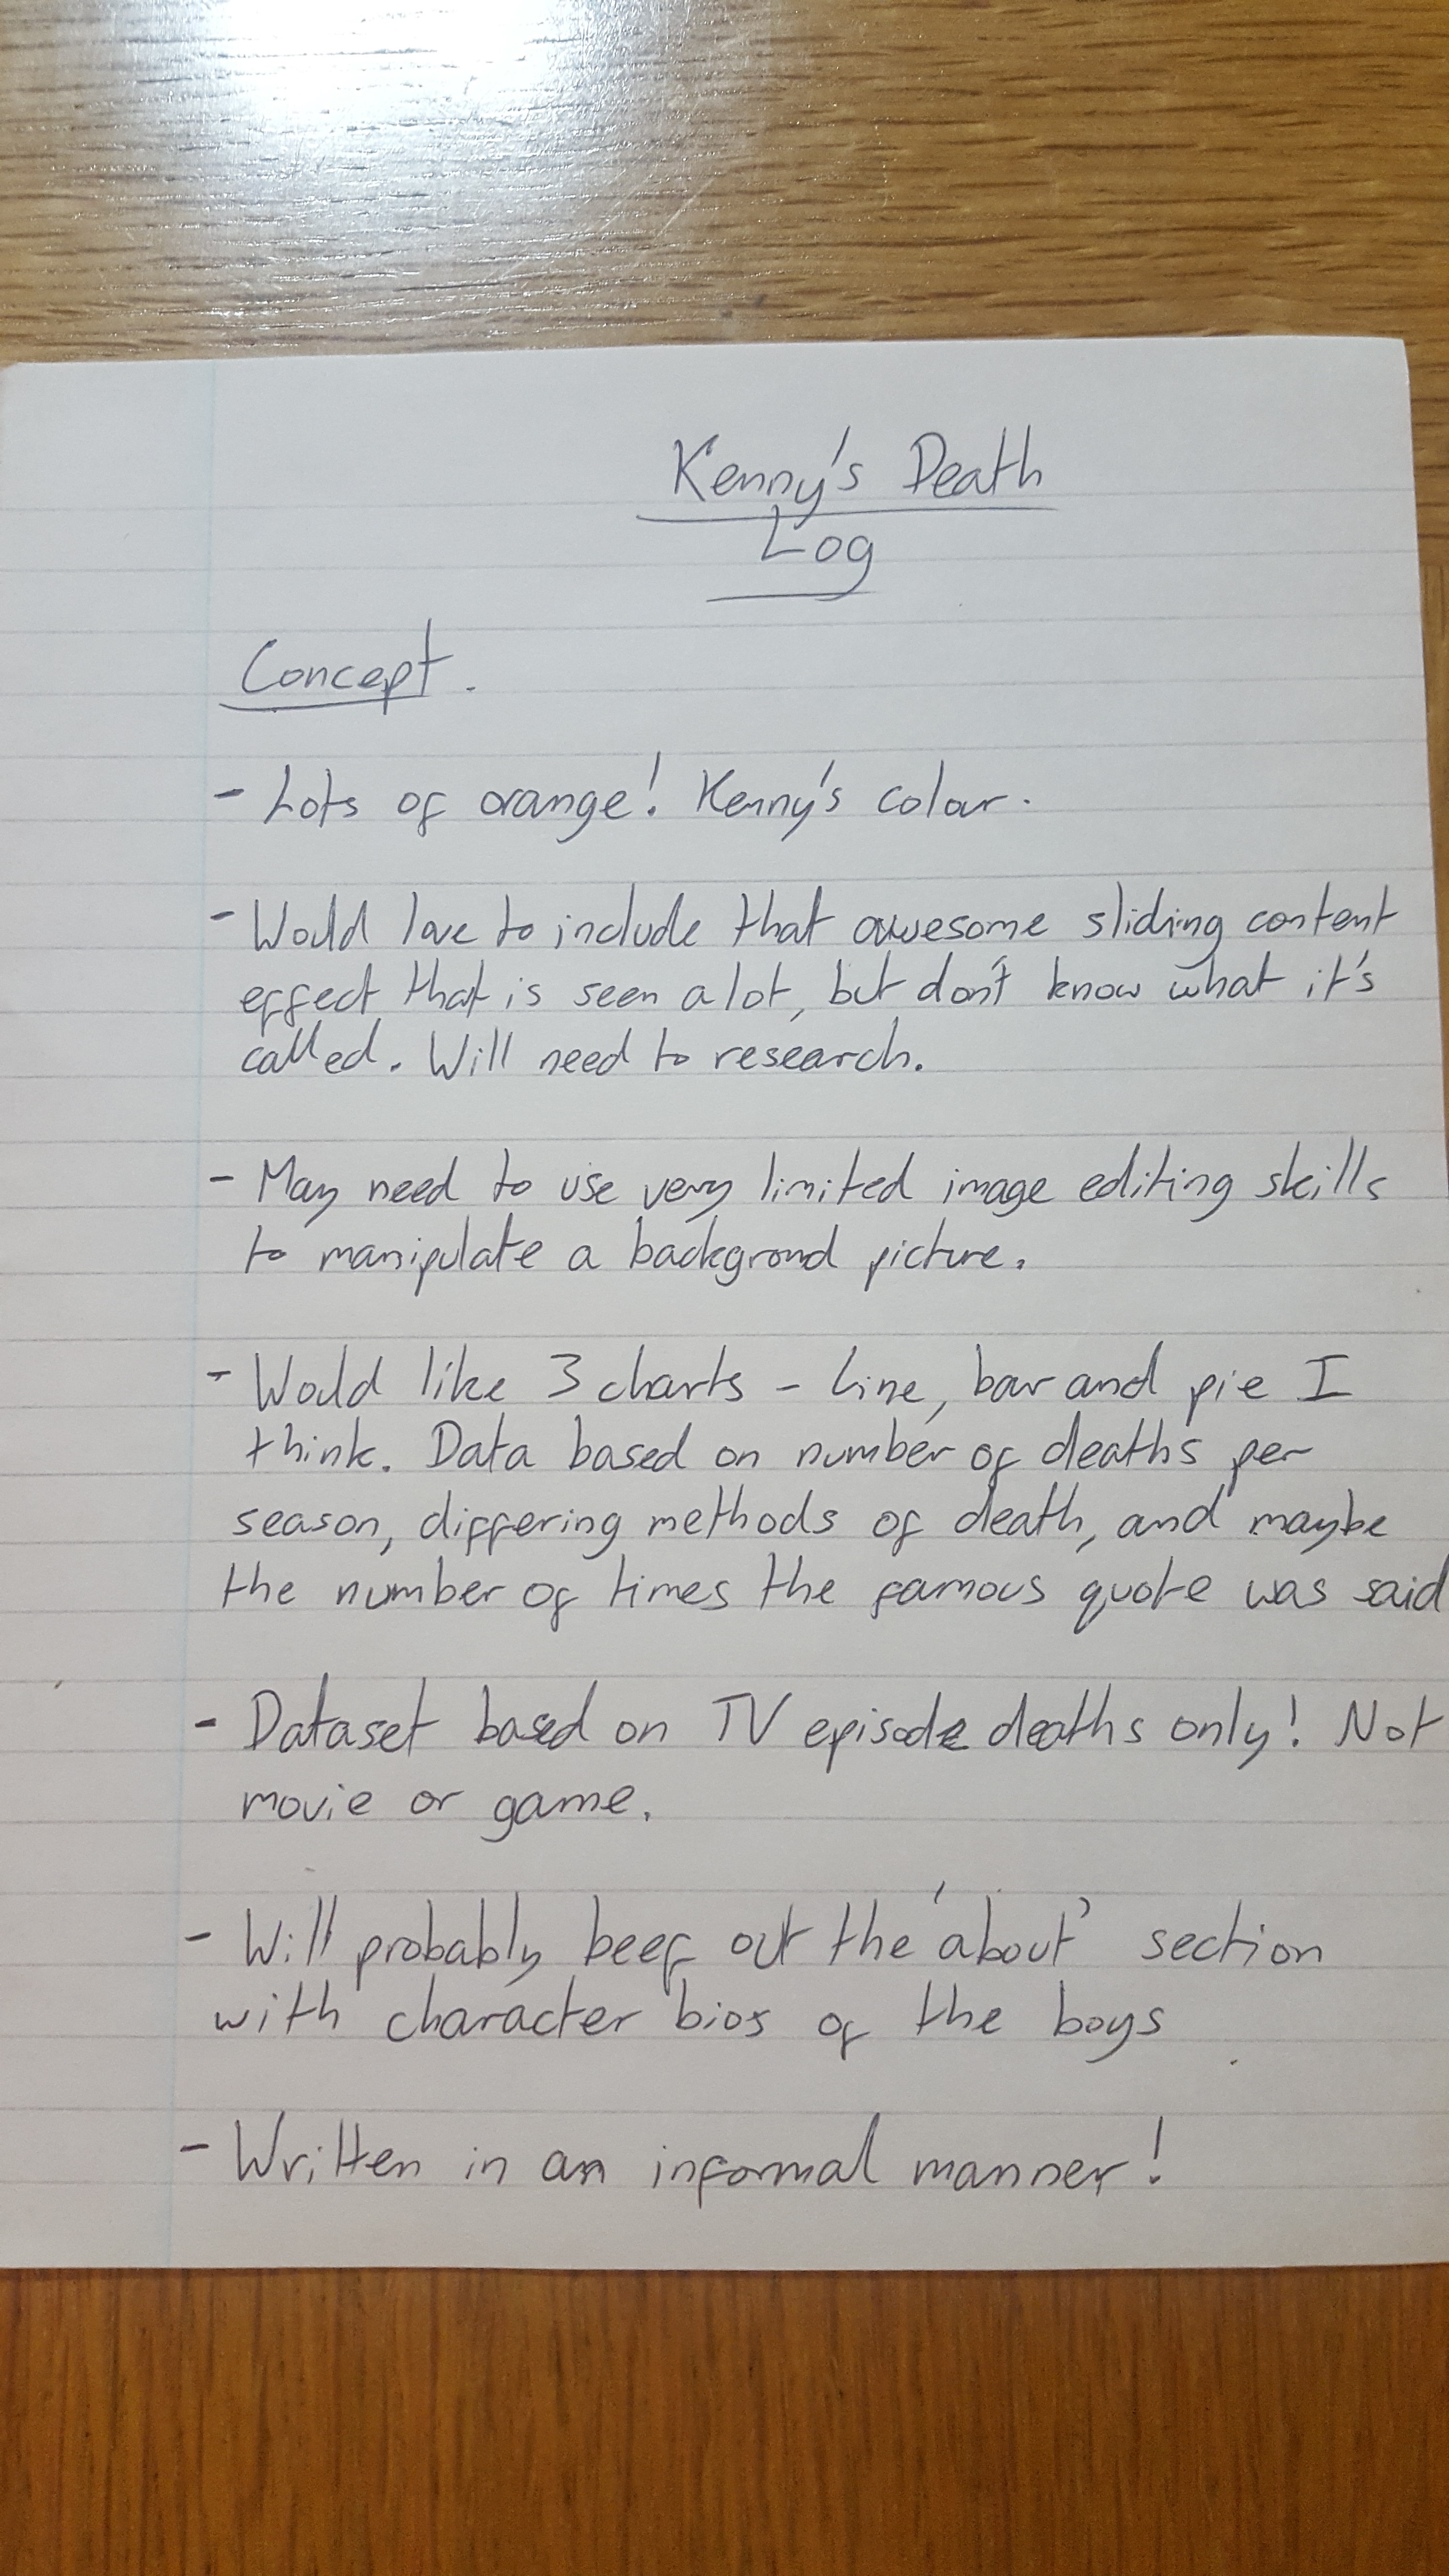 Kenny's Death
Log
Concept.
- Lots of orange! Kenny's colour.
- Would love to include that awesome sliding content
effect that is seen a lot, but don't know what it's
called. Will need to research.
- May need to use very limited image editing skills
to manipulate a backgrond picture.
- Would like 3 charts - Line, bar and pie I
think. Data based on number of deaths per
season, differing methods of death, and maybe
the number of times the famous quote was said
- Dataset based on TV episode deaths only! Not
movie or game.
- Will probably beef out the 'about' section
with character bios of the boys
- Written in an informal manner!